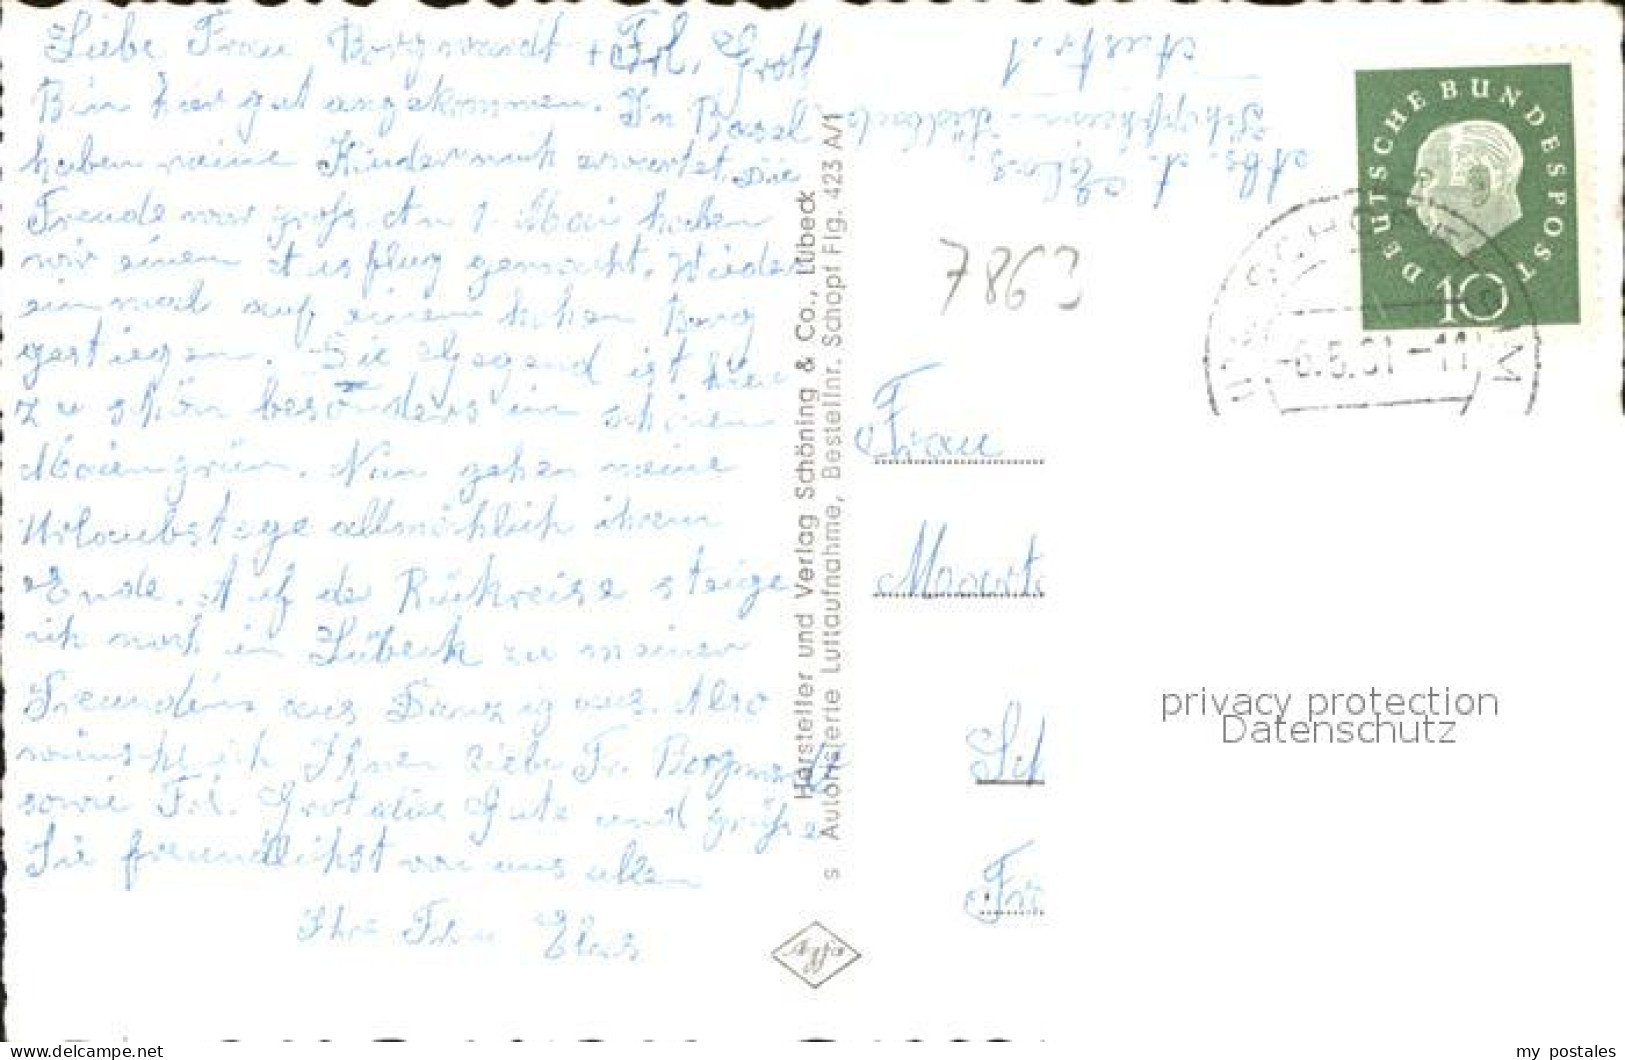 Liebe Frau Borgwardt + Frl. Grot
Bin hier gut angekommen. In Basel
haben meine Kinder mich erwartet. Die
Freude war groß. An 1. Mai haben
wir einen Ausflug gemacht. Wieder
einmal auf einem hohen Berg
gestiegen. Die Gegend ist hier
zu schön besonders im schönen
Maiengrün. Nun gehen meine
Urlaubstage allmählich ihrem
Ende. Auf de Rückreise steige
ich noch in Lübeck zu meiner
Freundin aus Danzig aus. Also
wünsche ich Ihnen liebe Fr. Borgwardt
sowie Frl. Grot alles Gute und grüße
Sie freundlichst von uns allen
Ihre Frau
Hersteller und Verlag Schöning & Co., Lübeck
s Autorisierte Luftaufnahme, Bestellnr. Schopf Flg. 423 A/1
Agfa
Abs. A.
Schopfheim
7863
DEUTSCHE BUNDESPOST
10
-6.5.61-11
Frau
Fr
privacy protection
Datenschutz
my postales